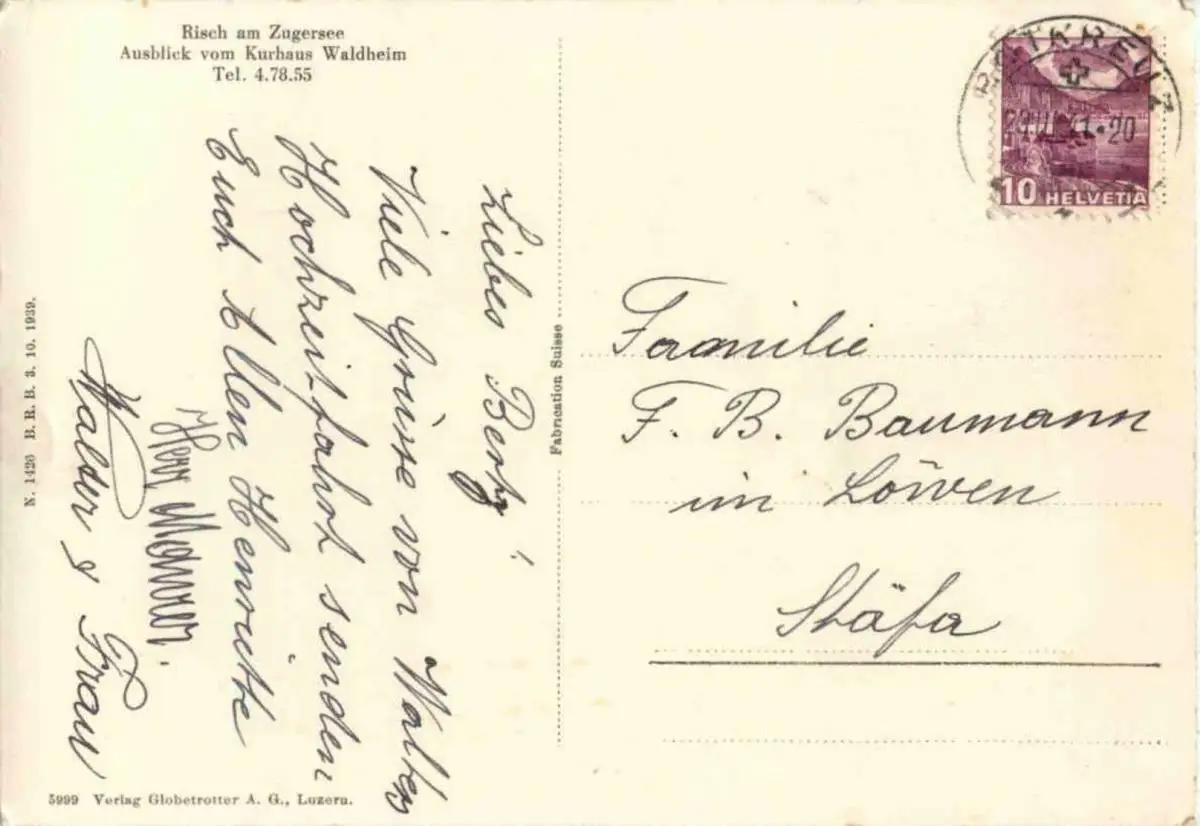 Risch am Zugersee
Ausblick vom Kurhaus Waldheim
Tel. 4.78.55
Liebes Berty!
Viele Grüsse von Walters
Hochzeitfahrt senden
Euch Allen Henriette
Walter & Frau
N. 1426 B. R. B. 3. 10. 1939.
5999 Verlag Globetrotter A. G., Luzern.
Fabrication Suisse
ROTKREUZ
41·20
10 HELVETIA
Familie
F. B. Baumann
im Löwen
Stäfa